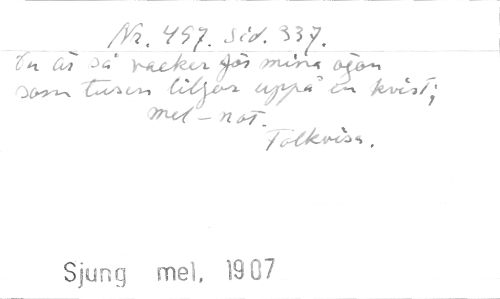 Nr. 497. Sid. 337.
Du är så vacker för mina ögon
som tusen liljor uppå en kvist;
mel-not.
Folkvisa.
Sjung mel, 1907